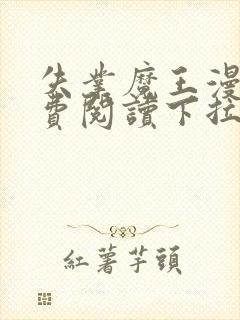 失業魔王漫
費閱讀下拉
紅薯芋頭